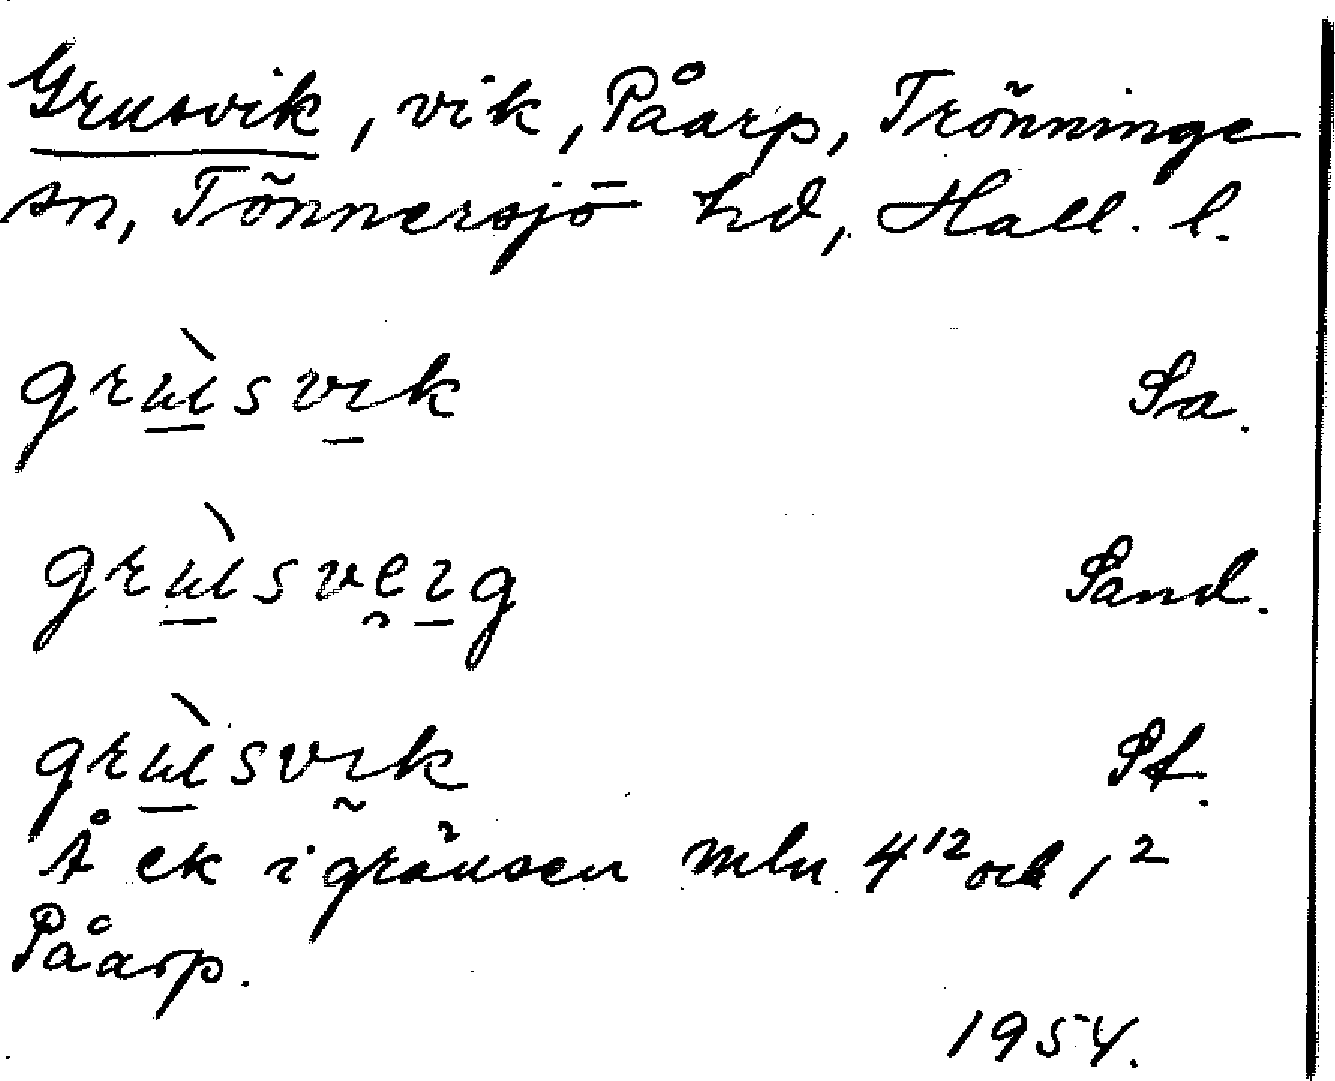 Grusvik, vik, Påarp, Trönninge
sn, Tönnersjö hd, Hall. l.
grùsvik Sa.
grùsveig Sand.
grùsvik St.
Å ek i gränsen mln 4¹² och 1²
Påarp.
1954.